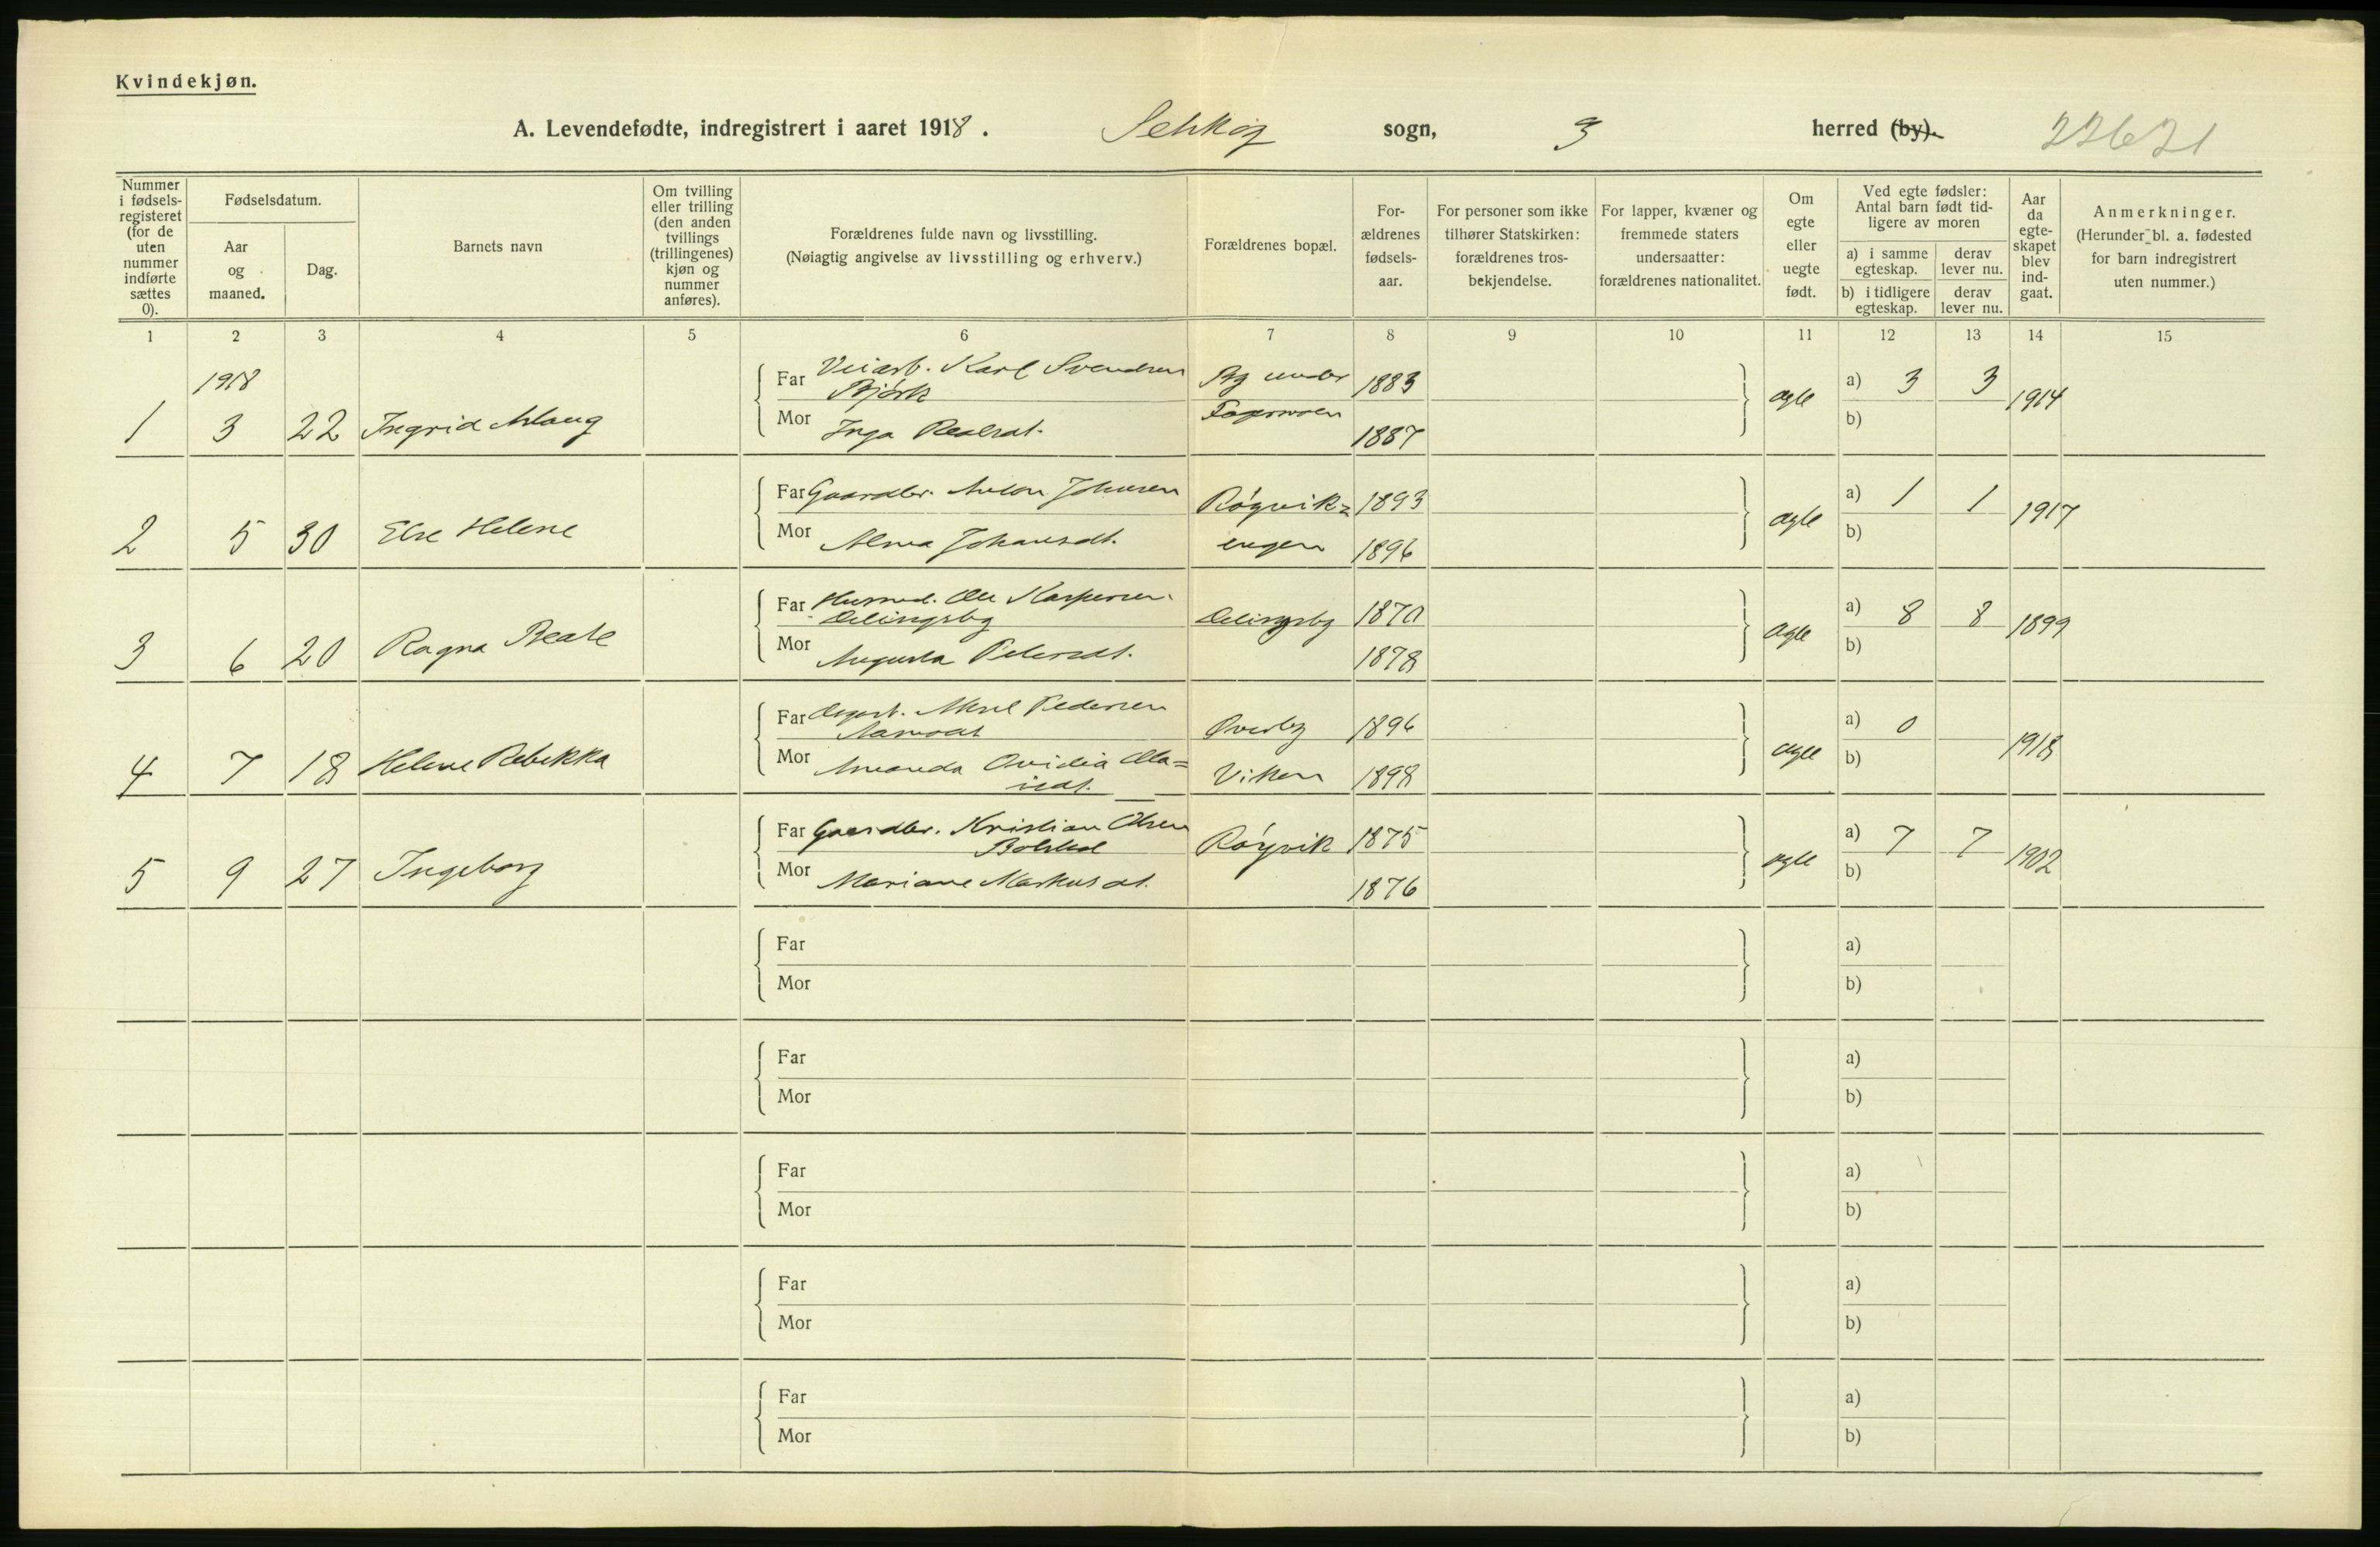 Kvindekjøn.
A. Levendefødte, indregistrert i aaret 1918. sogn, herred (by). 22621
Nummer i fødsels-registeret (for de uten nummer indførte sættes 0).
Fødselsdatum.
Aar og maaned.
Dag.
Barnets navn
Om tvilling eller trilling (den anden tvillings (trillingenes) kjøn og nummer anføres).
Forældrenes fulde navn og livsstilling.
(Nøiagtig angivelse av livsstilling og erhverv.)
Forældrenes bopæl.
For-ældrenes fødsels-aar.
For personer som ikke tilhører Statskirken: forældrenes tros-bekjendelse.
For lapper, kvæner og fremmede staters undersaatter: forældrenes nationalitet.
Om egte eller uegte født.
Ved egte fødsler: Antal barn født tid-ligere av moren
a) i samme egteskap.
derav lever nu.
b) i tidligere egteskap.
derav lever nu.
Aar da egte-skapet blev ind-gaat.
Anmerkninger.
(Herunder bl. a. fødested for barn indregistrert uten nummer.)
1 2 3 4 5 6 7 8 9 10 11 12 13 14 15
1918
Far Veiarb. Karl Svendsen 1883 a) 3 3 1914
Bjørk
1 3 22 Ingrid Aslaug ægte
Mor Inga 1887 b)
Far Gaardbr. Anton Johnsen Røgvik= 1893 a) 1 1 1917
2 5 30 Else Helene ægte
Mor Alma Johansdt. engen 1896 b)
Far Husmd. Ole Kaspersen 1870 a) 8 8 1899
3 6 20 Ragna Beate ægte
Mor Augusta Pedersdt. 1878 b)
Far Aksel Pedersen Øverby 1896 a) 0 1918
4 7 18 Helene Rebekka ægte
Mor Amanda Ovidia Ola= Viken 1898 b)
Far Gaardbr. Kristian Olsen Røgvik 1875 a) 7 7 1902
5 9 27 Ingeborg ægte
Mor Mariane Markusdt. 1876 b)
Far a)
Mor b)
Far a)
Mor b)
Far a)
Mor b)
Far a)
Mor b)
Far a)
Mor b)